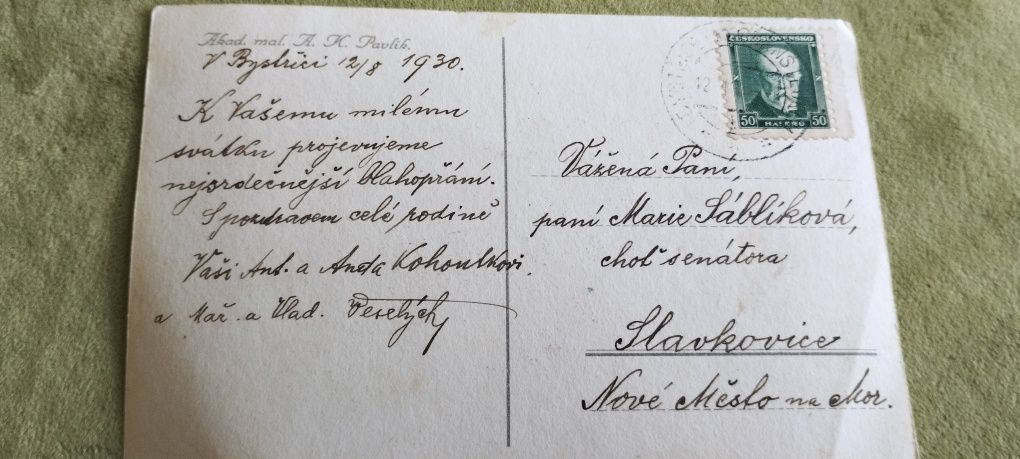 Akad. mal. A. H. Pavlík.
V Bystřici 12/8 1930.
K Vašemu milému
svátku projevujeme
nejsrdečnější blahopřání.
S pozdravem celé rodině
Vaši Ant. a Anda Kohoutkovi.
a Mař. a Vlad. Veselých
ČESKOSLOVENSKO
50 HALÉŘŮ 50
12
Vážená Paní,
paní Marie Sáblíková,
choť senátora
Slavkovice
Nové Město na Mor.